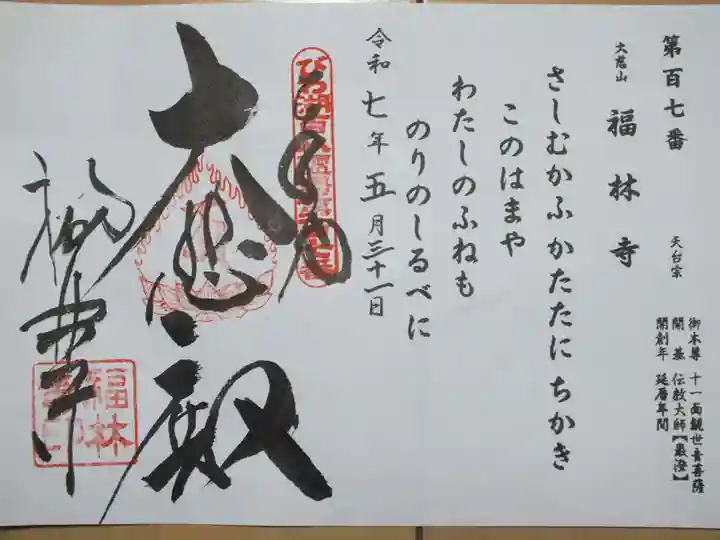 第百七番
大慈山 福林寺 天台宗
御本尊 十一面観世音菩薩
開基 伝教大師【最澄】
開創年 延暦年間
さしむかふかたたにちかき
このはまや
わたしのふねも
のりのしるべに
令和七年五月三十一日
大悲殿
福林寺
福林